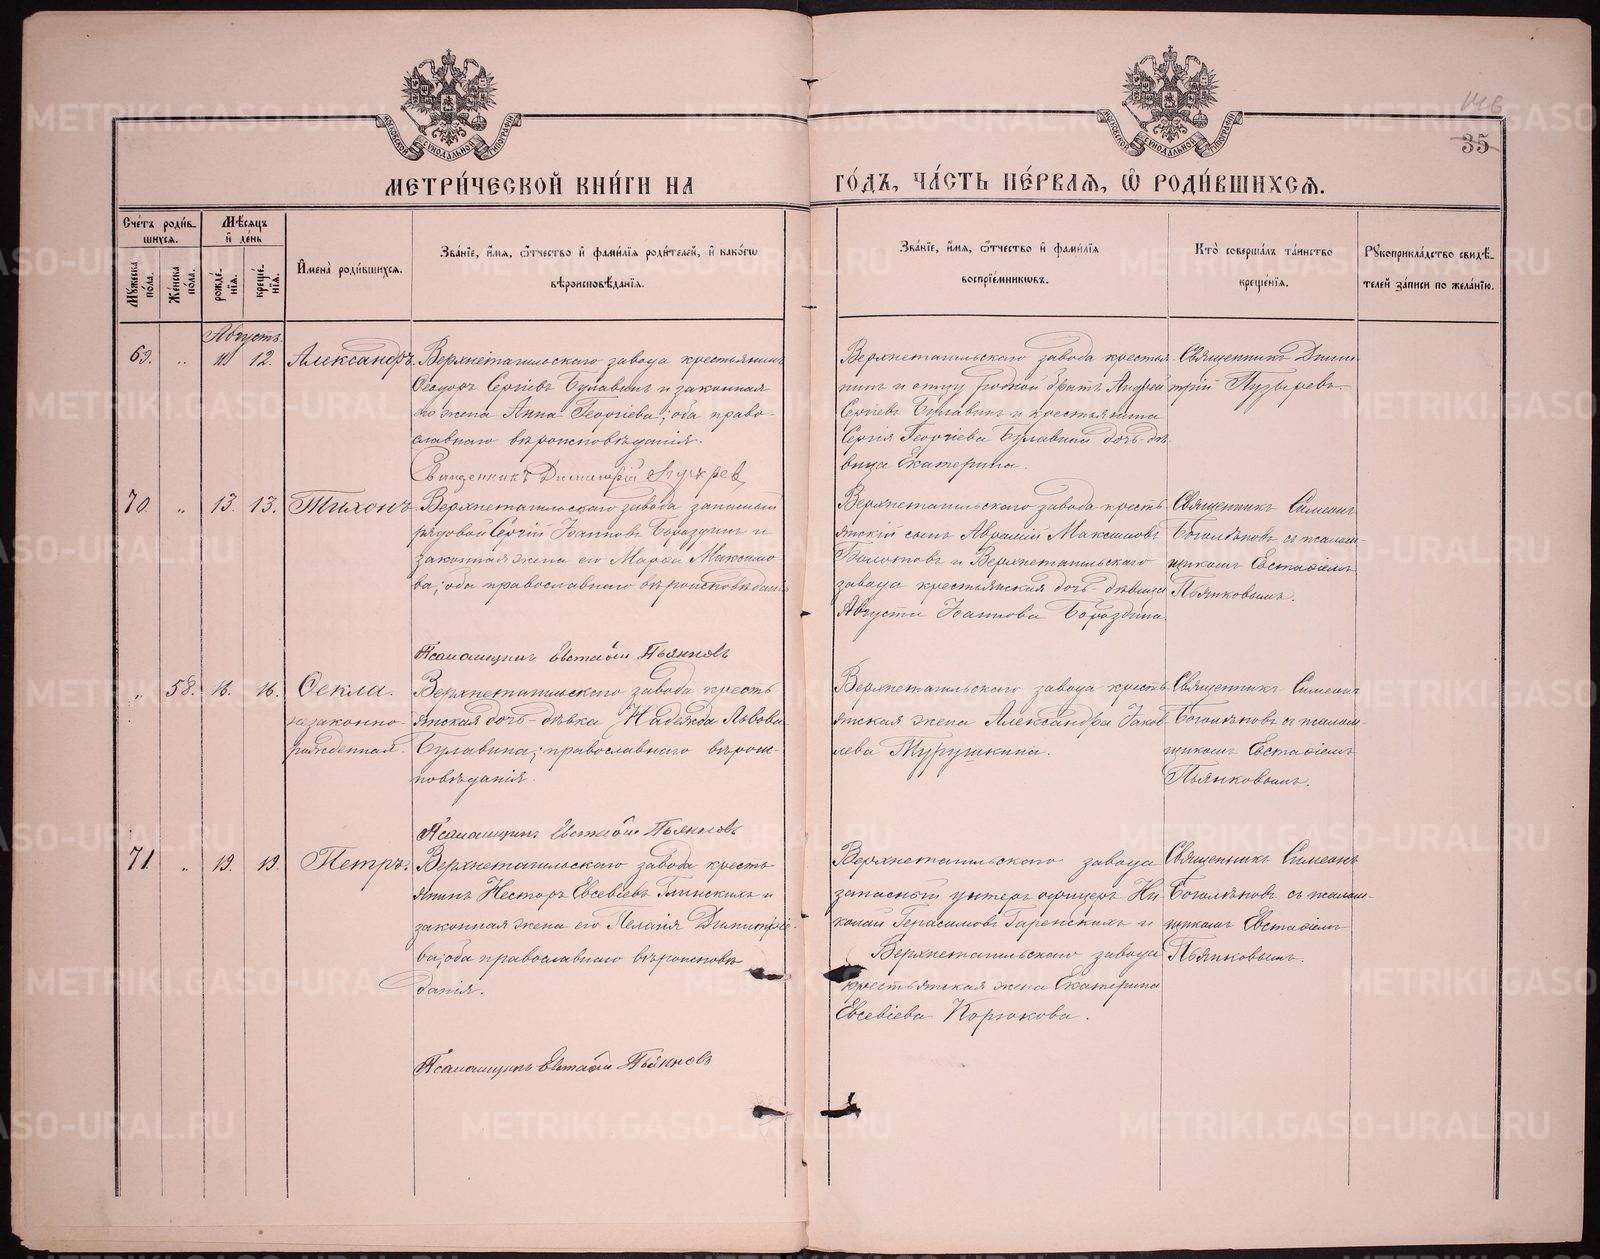 146
35
МЕТРИ́ЧЕСКОЙ КНИ́ГИ НА
ГО́ДЪ, ЧА́СТЬ ПЕ́РВАѦ, Ѡ РОДИ́ВШИХСѦ.
Сче́тъ роди́в-
шихсѧ.
Мꙋжеска по́ла.
Же́нска по́ла.
Мѣ́сѧцъ
и҆ де́нь
рожде́-
нїѧ.
креще́-
нїѧ.
И҆мена̀ роди́вшихсѧ.
Зва́нїе, и҆́мѧ, ѻ҆́тчество и҆ фами́лїѧ роди́телей, и҆ како́гѡ
вѣроисповѣ́данїѧ.
Зва́нїе, и҆́мѧ, ѻ҆́тчество и҆ фами́лїѧ
воспрїе́мникѡвъ.
Кто̀ соверша́лъ та́инство
креще́нїѧ.
Рꙋкоприкла́дство свидѣ́-
телей за́писи по жела́нїю.
Августъ
69. „ 11 12. Александръ.
Верхнетагильскаго завода крестьянинъ
Ѳеодоръ Сергіевъ Булавинъ и законная
его жена Анна Георгіева; оба право-
славнаго вѣроисповѣданія.
Священникъ Димитрій Пузырев
Верхнетагильскаго завода крестья-
нинъ и отцу родной братъ Андрей
Сергіевъ Булавинъ и крестьянина
Сергія Георгіева Булавина дочь-дѣ
вица Екатерина.
Священникъ Дими-
трій Пузыревъ.
70. „ 13. 13. Тихонъ.
Верхнетагильскаго завода запасный
рядовой Сергій Іоанновъ Бороздинъ и
законная жена его Марѳа Максимо-
ва; оба православнаго вѣроисповѣданія
Псаломщикъ Евстафій Пьянковъ
Верхнетагильскаго завода кресть
янскій сынъ Аврамій Максимовъ
Болотовъ и Верхнетагильскаго
завода крестьянская дочь-дѣвица
Августа Іоаннова Бороздина.
Священникъ Симеонъ
Боголѣповъ съ псалом-
щикомъ Евстафіемъ
Пьянковымъ.
„ 58. 16. 16. Ѳекла.
незаконно-
рожденная.
Верхнетагильскаго завода кресть
янская дочь-дѣвка Надежда Львова
Булавина; православнаго вѣроис-
повѣданія.
Псаломщикъ Евстафій Пьянковъ
Верхнетагильскаго завода кресть
янская жена Александра Іаков
лева Мурушкина.
Священникъ Симеонъ
Боголѣповъ съ псалом-
щикомъ Евстафіемъ
Пьянковымъ.
71 „ 19. 19. Петръ.
Верхнетагильскаго завода кресть
янинъ Несторъ Евсевіевъ Глинскихъ и
законная жена его Пелагія Димитріе-
ва; оба православнаго вѣроисповѣ
данія.
Псаломщикъ Евстафій Пьянковъ
Верхнетагильскаго завода
запасный унтеръ офицеръ Ни
колай Герасимовъ Гаренскихъ и
Верхнетагильскаго завода
крестьянская жена Екатерина
Евсевіева Корюкова.
Священникъ Симеонъ
Боголѣповъ съ псалом-
щикомъ Евстафіемъ
Пьянковымъ.
METRIKI.GASO-URAL.RU